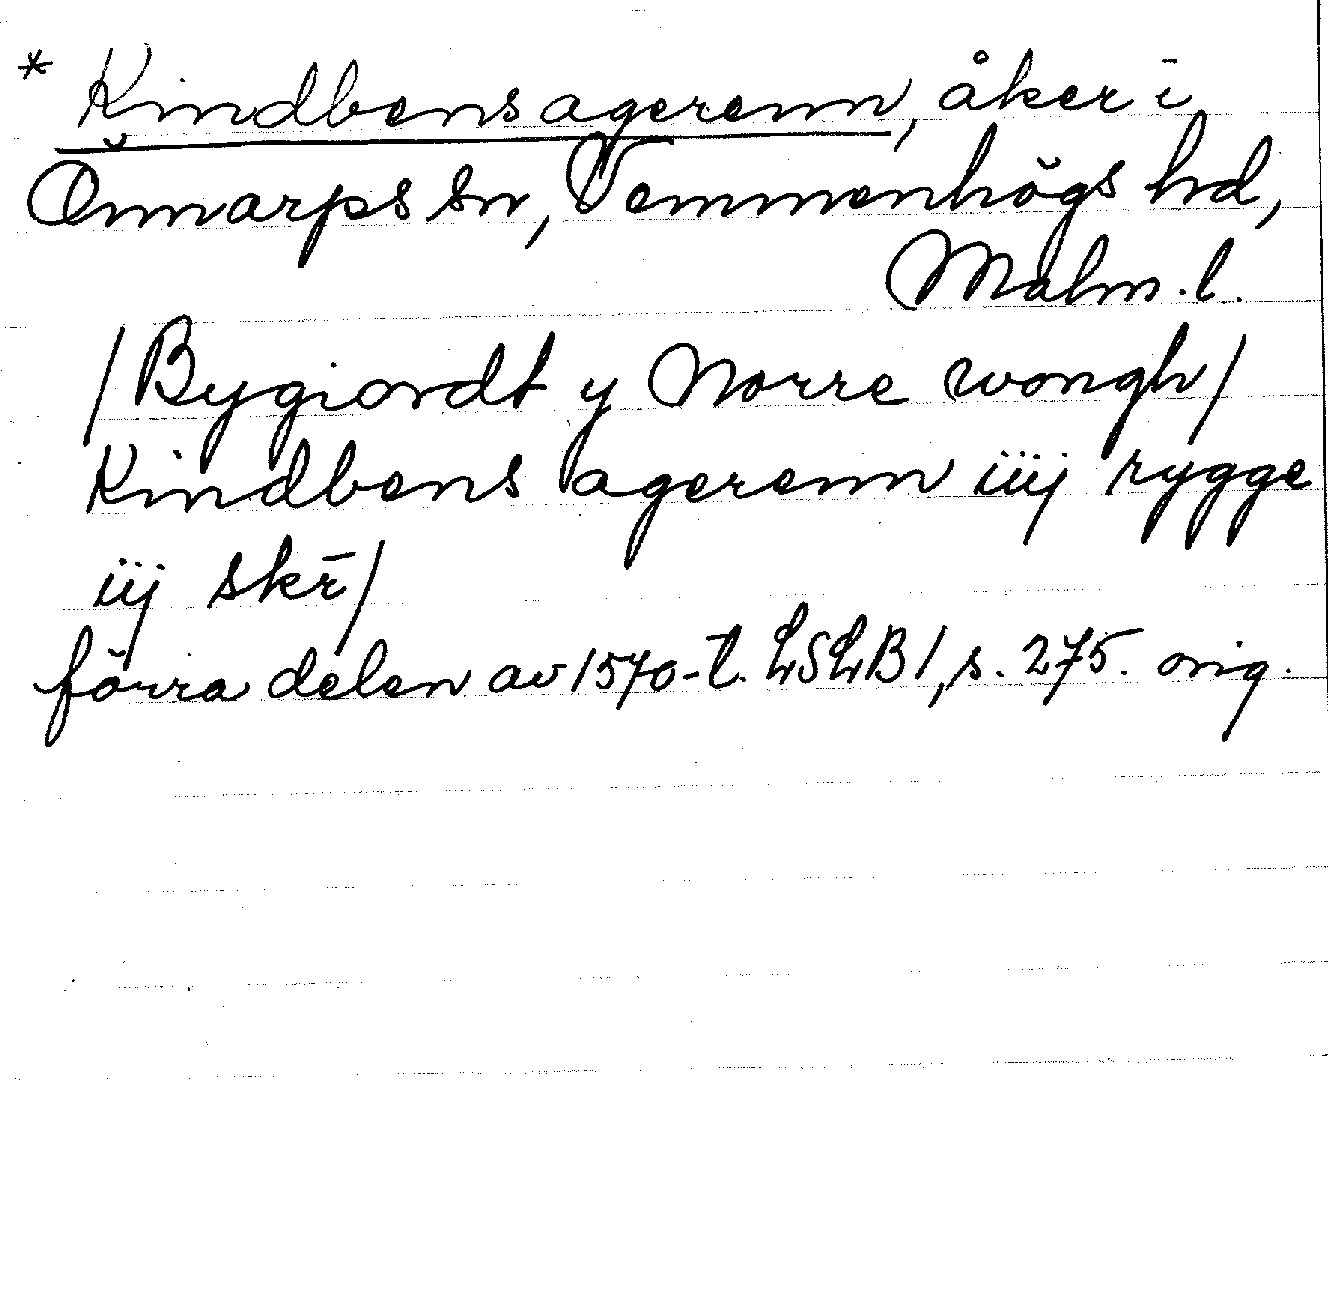 * Kindbensagerenn, åker i
Önnarps sn, Vemmenhögs hd,
Malm.l.
/Bygiordt y Norre wongh/
Kindbens agerenn iiij rygge
iij skr̄/
förra delen av 1570-t. LSLB 1, s. 275. orig.